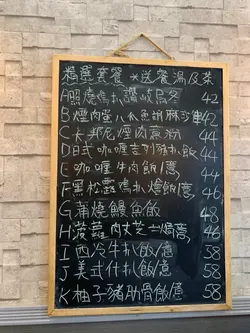 精選套餐 *送餐湯及菜
A 照燒鳥扒讚岐烏冬 42
B 煙肉蛋八爪魚胡麻沙律 42
C 卡邦尼煙肉意粉 44
D 日式咖喱吉列豬扒飯 44
E 咖喱牛肉飯/意 44
F 黑松露鳥扒燴飯/意 46
G 蒲燒鰻魚飯 48
H 菠蘿肉丸芝士焗意 46
I 西冷牛扒飯/意 58
J 美式什扒飯/意 58
K 柚子豬肋骨飯/意 58